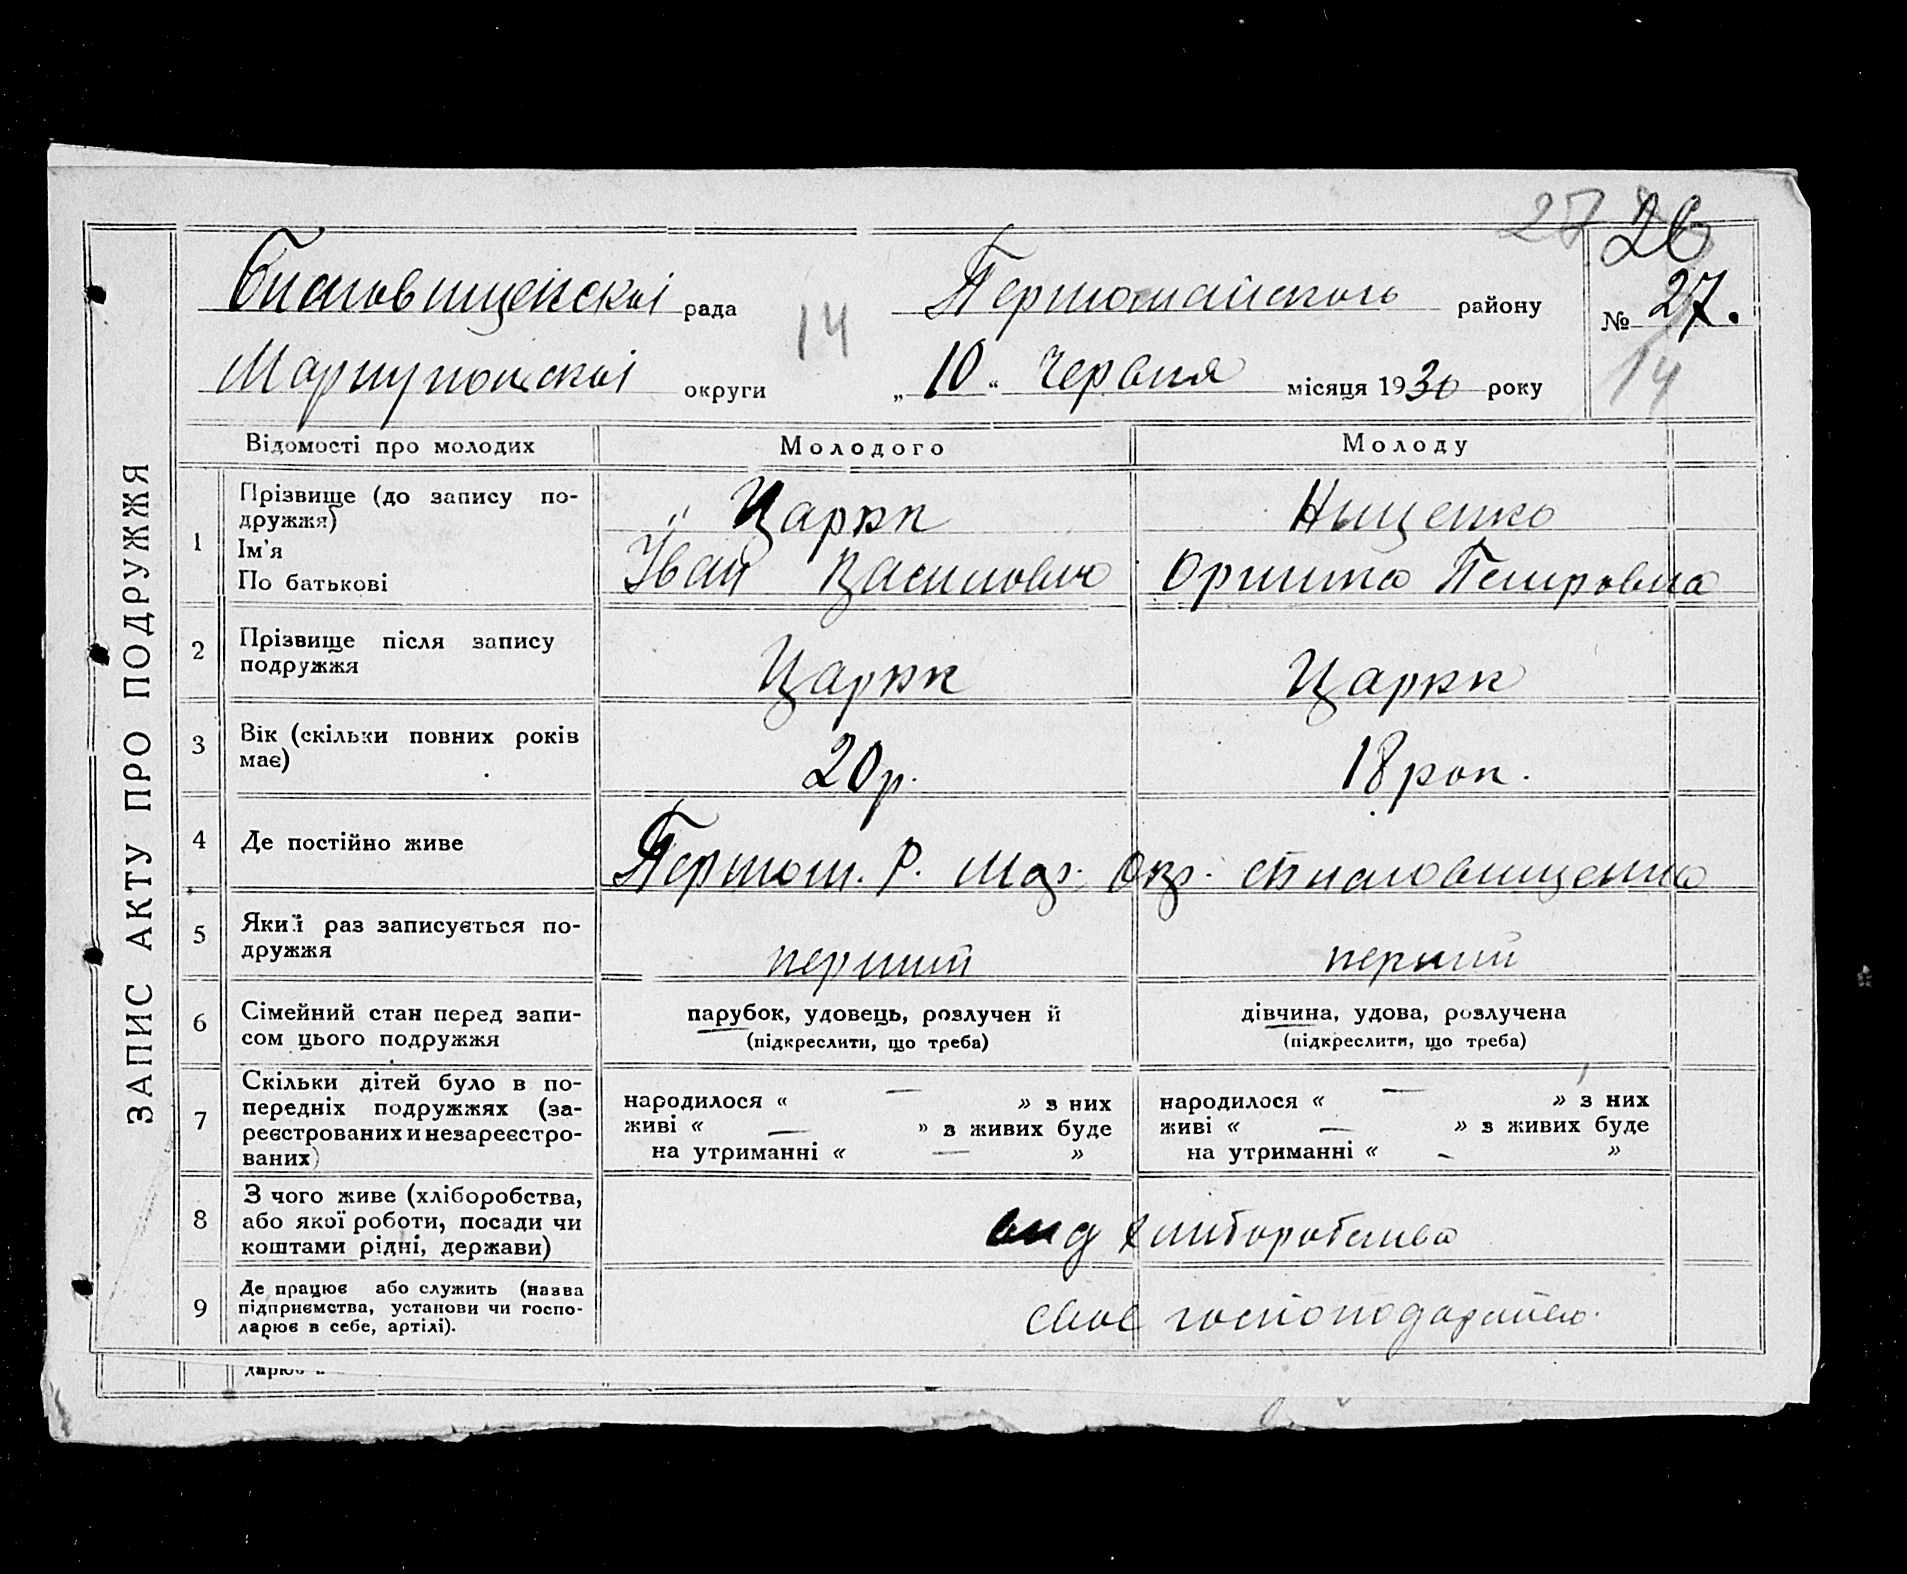 27 26
Благовищенскої рада Першомайського району № 27.
14
Маріупольскої округи „10“ Червня місяця 1930 року
14
ЗАПИС АКТУ ПРО ПОДРУЖЖЯ
Відомості про молодих Молодого Молоду
1 Прізвище (до запису по-
дружжя)
Ім'я
По батькові
Царик Нищенко
Іван Василович Оришка Петровна
2 Прізвище після запису
подружжя
Царик Царик
3 Вік (скільки повних років
має)
20р. 18 рок.
4 Де постійно живе
Першом. Р. Мар. Окр. Благовищенка
5 Який раз записується по-
дружжя
перший перший
6 Сімейний стан перед запи-
сом цього подружжя
парубок, удовець, розлучен й
(підкреслити, що треба)
дівчина, удова, розлучена
(підкреслити, що треба)
7 Скільки дітей було в по-
передніх подружжях (за-
реєстрованих и незареєстро-
ваних)
народилося « — » з них
живі « — » з живих буде
на утриманні « — »
народилося « — » з них
живі « — » з живих буде
на утриманні « - »
8 З чого живе (хліборобства,
або якої роботи, посади чи
коштами рідні, держави)
від хлиборобства
9 Де працює або служить (назва
підприємства, установи чи госпо-
дарює в себе, артілі).
своє
дарює